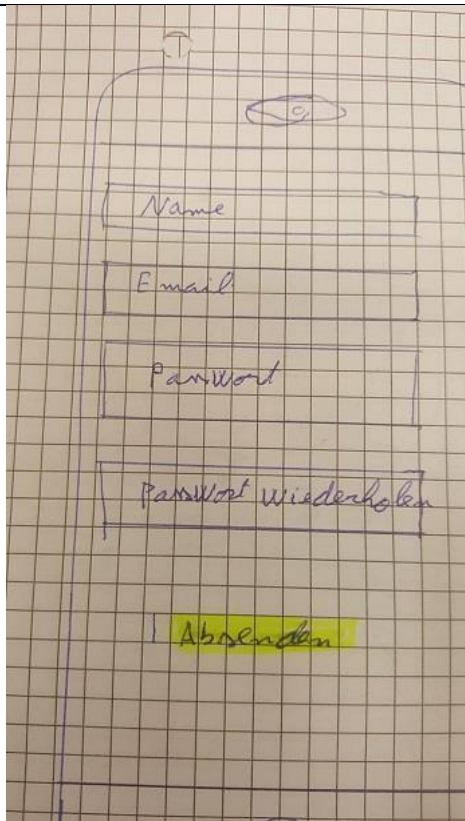 Name
Email
Passwort
Passwort wiederholen
Absenden